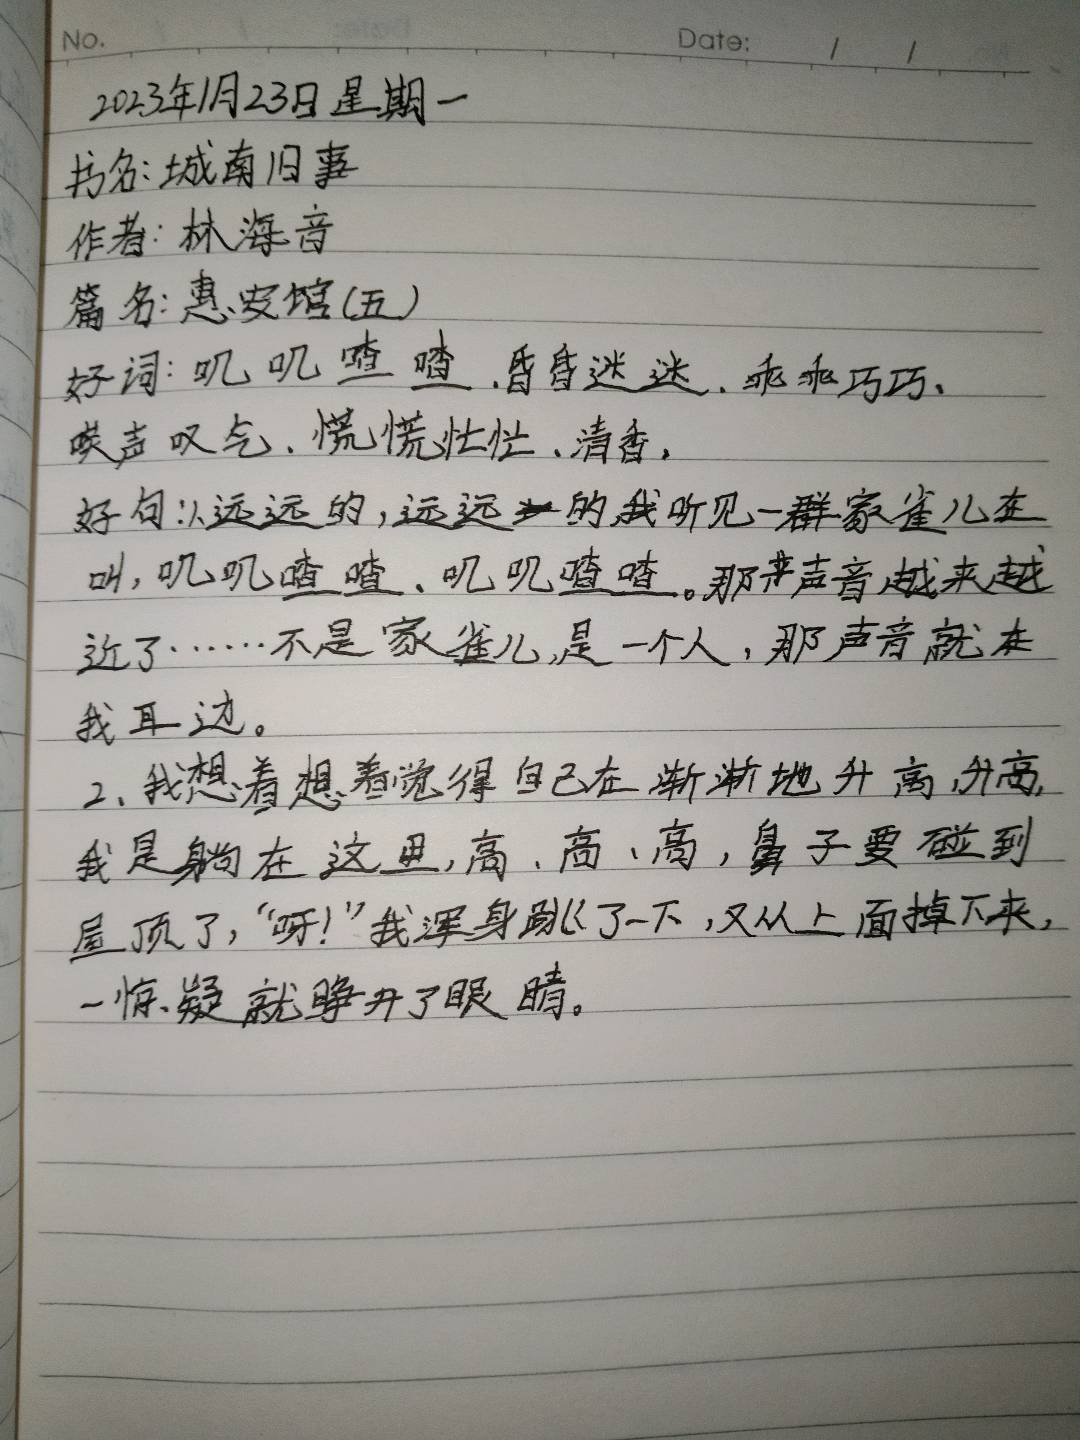 No.
Date: / /
2023年1月23日星期一
书名:城南旧事
作者:林海音
篇名:惠安馆(五)
好词:叽叽喳喳、昏昏迷迷、乖乖巧巧、
唉声叹气、慌慌忙忙、清香,
好句:1、远远的,远远的,我听见一群家雀儿在
叫,叽叽喳喳、叽叽喳喳。那声音越来越
近了……不是家雀儿,是一个人,那声音就在
我耳边。
2、我想着想着觉得自己在渐渐地升高,升高,
我是躺在这里,高、高、高,鼻子要碰到
屋顶了,“呀!”我浑身跳了一下,又从上面掉下来,
一惊疑就睁开了眼睛。